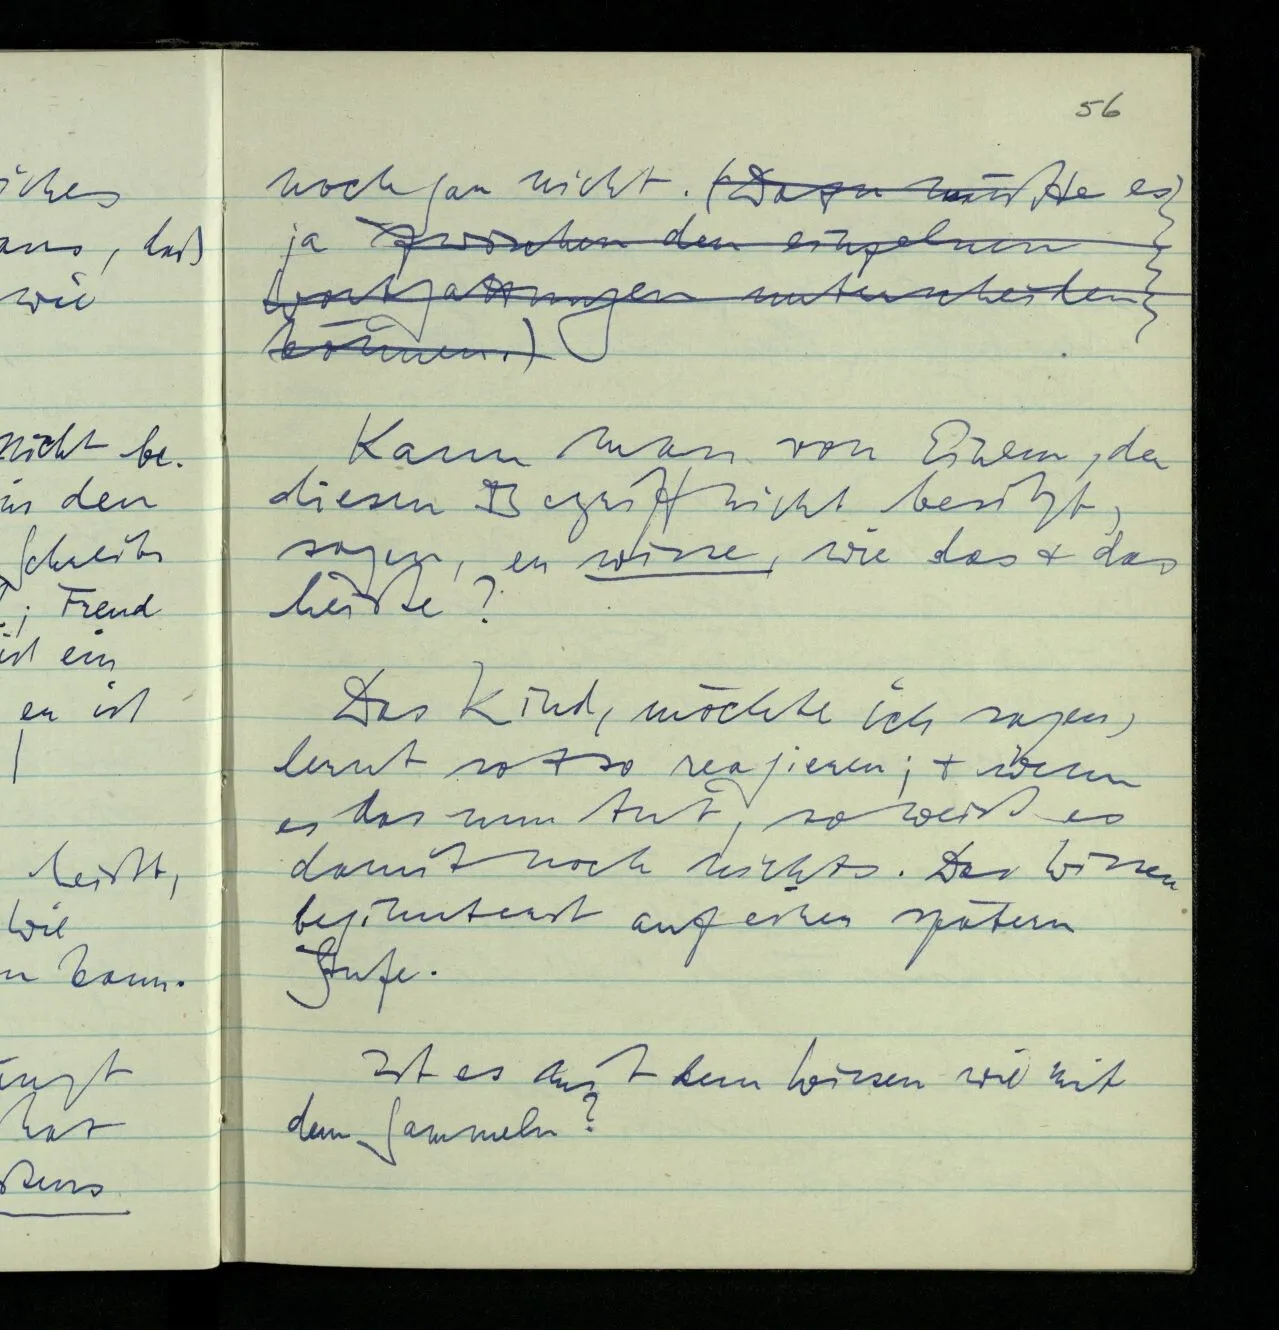 aus, daß
wie
nicht be-
den
ist ein
er ist
heißt,
wie
kann.
hat
56
noch gar nicht. (Dazu müßte es
ja zwischen den einzelnen
Wortgattungen unterscheiden
können.)
Kann man von Einem, der
diesen Begriff nicht besitzt,
sagen, er wisse, wie das + das
heiße?
Das Kind, möchte ich sagen,
lernt so + so reagieren; + wenn
es das nun tut, so weiß es
damit noch nichts. Das Wissen
beginnt erst auf einer spätern
Stufe.
Ist es mit dem Wissen wie mit
dem Sammeln?